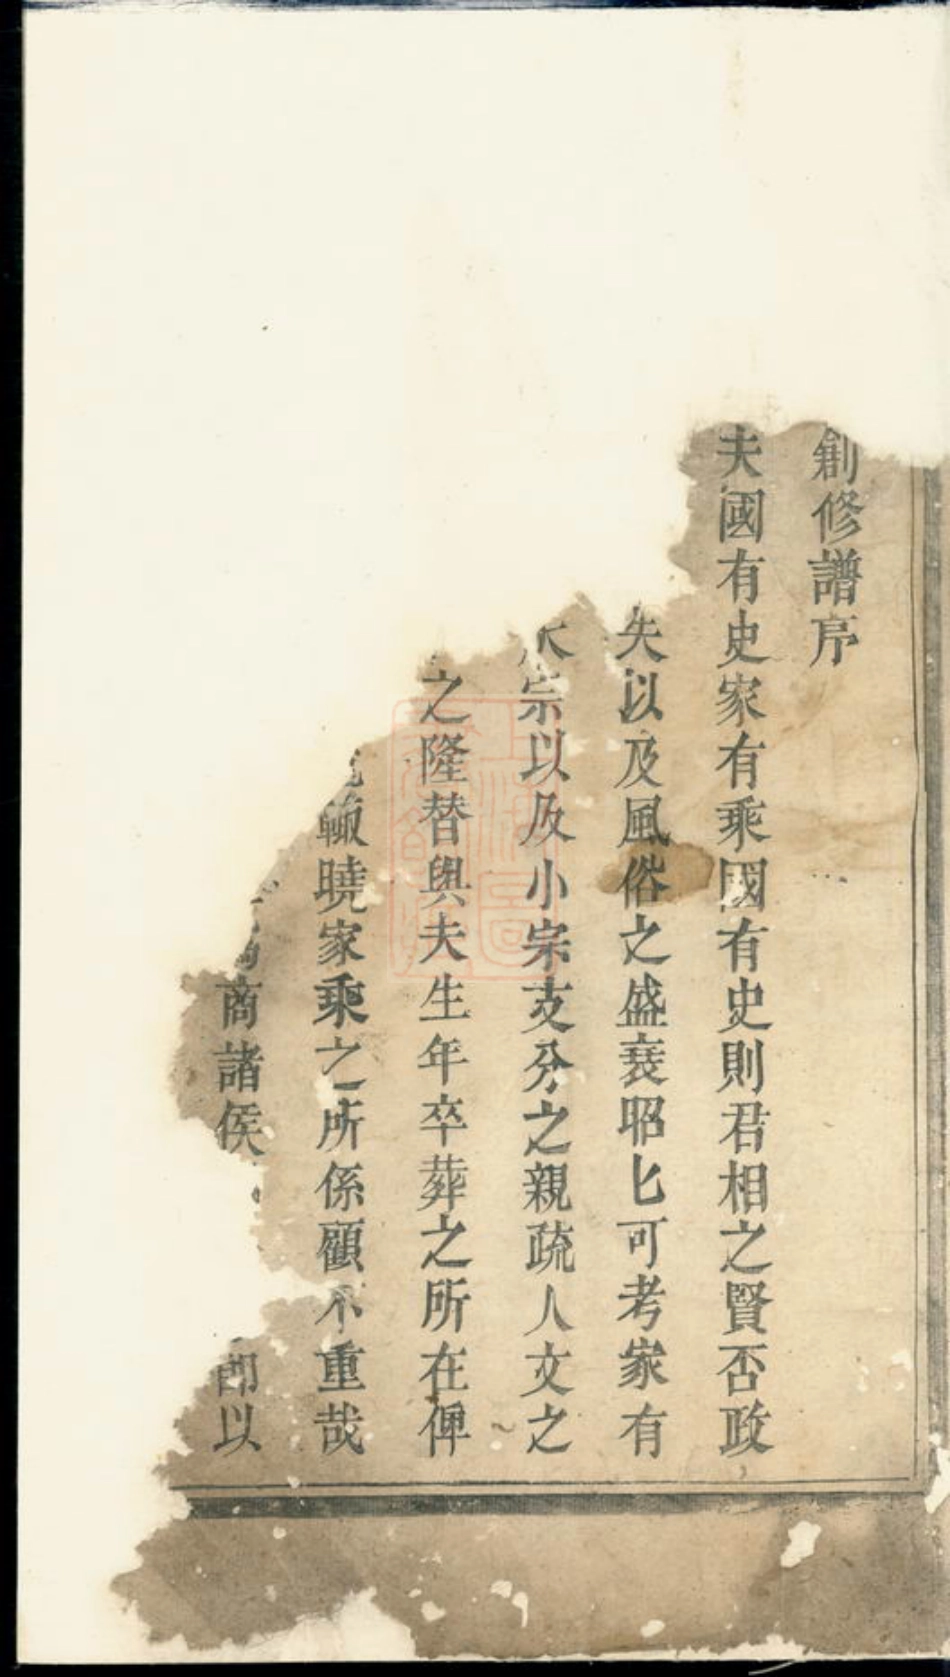 創修譜序
夫國有史家有乘國有史則君相之賢否政
失以及風俗之盛衰昭匕可考家有
宗以及小宗支分之親疏人文之
之隆替與夫生年卒葬之所在俾
輙曉家乘之所係顧不重哉
商諸侯
即以